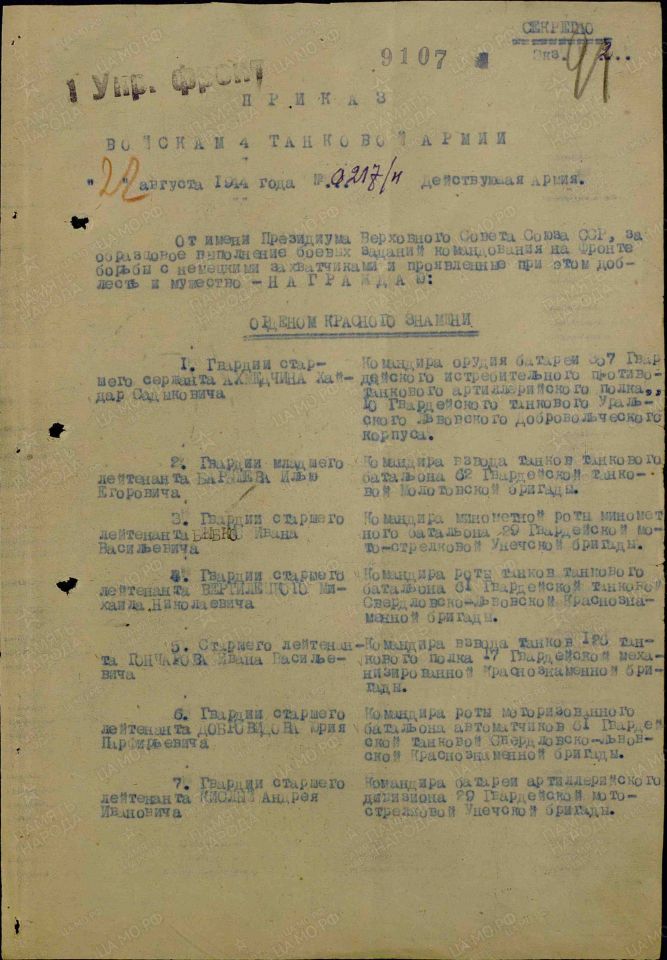 СЕКРЕТНО
Экз. 2..
9107
1 Упр. фронт
ПРИКАЗ
ВОЙСКАМ 4 ТАНКОВОЙ АРМИИ
"22" августа 1944 года № 0217/н Действующая Армия.
От имени Президиума Верховного Совета Союза ССР, за
образцовое выполнение боевых заданий командования на фронте
борьбы с немецкими захватчиками и проявленные при этом доб-
лесть и мужество - НАГРАЖДАЮ:
ОРДЕНОМ КРАСНОГО ЗНАМЕНИ
1. Гвардии стар-
шего сержанта АХМЕДЧИНА Хай-
дар Садыковича
Командира орудия батареи 357 Гвар
дейского истребительного противо-
танкового артиллерийского полка,
10 Гвардейского танкового Ураль-
ского Львовского Добровольческого
корпуса.
2. Гвардии младшего
лейтенанта БАРЫШЕВА Илью
Егоровича
Командира взвода танков танкового
батальона 62 Гвардейской танко-
вой Молотовской бригады.
3. Гвардии старшего
лейтенанта Ивана
Васильевича
Командира минометной роты миномет
ного батальона 29 Гвардейской мо-
то-стрелковой Унечской бригады.
4. Гвардии старшего
лейтенанта ВЕРТИЛЕЦКОГО Ми-
хаила Николаевича
Командира роты танков танкового
батальона 61 Гвардейской танковой
Свердловско-Львовской Краснозна-
менной бригады.
5. Старшего лейтенан-
та ГОНЧАРОВА Ивана Василье-
вича
Командира взвода танков 126 тан-
кового полка 17 Гвардейской меха-
низированной Краснознаменной бри-
гады.
6. Гвардии старшего
лейтенанта ДОБРОВИДОВА Юрия
Парфирьевича
Командира роты моторизованного
батальона автоматчиков 61 Гвардей
ской танковой Свердловско-Львов-
ской Краснознаменной бригады.
7. Гвардии старшего
лейтенанта КИСЛЫЙ Андрея
Ивановича
Командира батареи артиллерийского
дивизиона 29 Гвардейской мото-
стрелковой Унечской бригады.